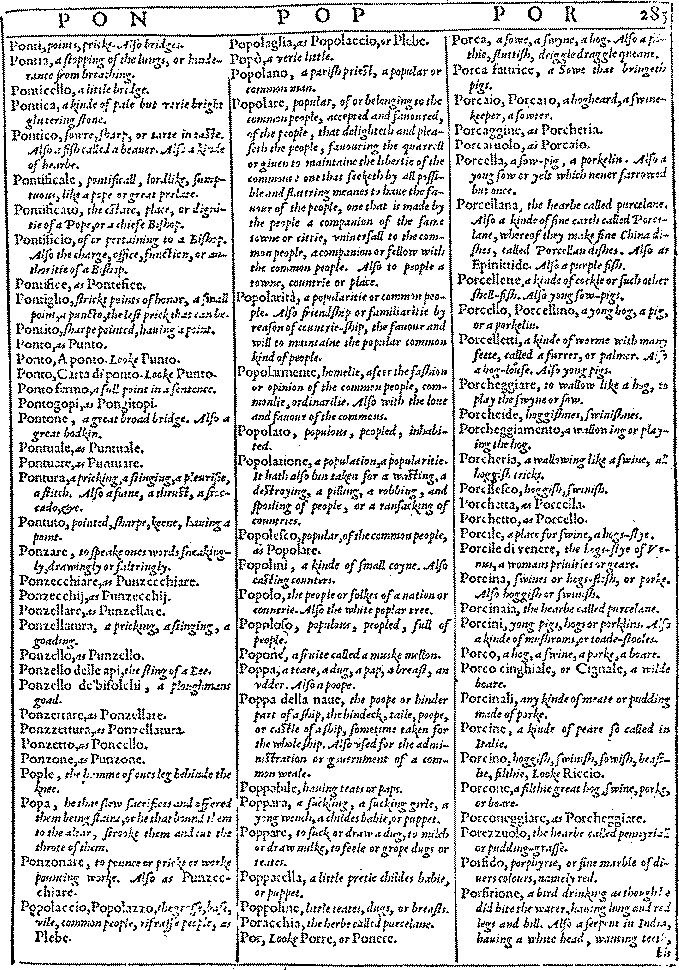 PON POP POR 285
Ponti, points, pricks. Also bridges.
Pontia, a stopping of the lungs, or hinde-
rance from breathing.
Ponticello, a little bridge.
Pontica, a kinde of pale but verie bright
glittering stone.
Pontico, sowre, sharp, or tarte in taste.
Also a fish called a beauer. Also a kinde
of hearbe.
Pontificale, pontificall, lordlike, sump-
tuous, like a pope or great prelate.
Pontificato, the estate, place, or digni-
tie of a Pope, or a chiefe Bishop.
Pontificio, of or pertaining to a Bishop.
Also the charge, office, function, or au-
thoritie of a Bishop.
Pontifice, as Pontefice.
Pontiglio, stricke points of honor, a small
point, a punto, the lest prick that can be.
Pontito, sharpe pointed, hauing a point.
Ponto, as Punto.
Ponto, A ponto. Looke Punto.
Ponto, Carta di ponto. Looke Punto.
Ponto fermo, a full point in a sentence.
Pontogopi, as Pongitopi.
Pontone, a great broad bridge. Also a
great bodkin.
Pontuale, as Puntuale.
Pontuare, as Puntuare.
Pontura, a pricking, a stinging, a pleurisie,
a stitch. Also a foine, a thrust, a stoc-
cado, &c.
Pontuto, pointed, sharpe, keene, hauing a
point.
Ponzare, to speake ones words sneaking-
ly, drawingly or faltringly.
Ponzecchiare, as Punzecchiare.
Ponzecchij, as Punzecchij.
Ponzellare, as Punzellare.
Ponzellatura, a pricking, a stinging, a
goading.
Ponzello, as Punzello.
Ponzello delle api, the sting of a Bee.
Ponzello de'bifolchi, a ploughmans
goad.
Ponzettare, as Ponzellare.
Ponzettura, as Ponzellatura.
Ponzetto, as Poncello.
Ponzone, as Punzone.
Pople, the hamme of ones leg behinde the
knee.
Popa, he that slew sacrifices and offered
them being slaine, or he that bound them
to the altar, strooke them and cut the
throte of them.
Ponzonare, to pounce or pricke or worke
pouncing worke. Also as Punzec-
chiare.
Popolaccio, Popolazzo, the grosse, base,
vile, common people, rifraffe people, as
Plebe.
Popolaglia, as Popolaccio, or Plebe.
Popò, a verie little.
Popolano, a parish priest, a popular or
common man.
Popolare, popular, of or belonging to the
common people, accepted and fauoured,
of the people, that delighteth and plea-
seth the people, fauouring the quarrell
or giuen to maintaine the libertie of the
commons: one that seeketh by all possi-
ble and flattring meanes to haue the fa-
uour of the people, one that is made by
the people a companion of the same
towne or cittie, vniuersall to the com-
mon people, a companion or fellow with
the common people. Also to people a
towne, countrie or place.
Popolarità, a popularitie or common peo-
ple. Also friendship or familiaritie by
reason of countrie-ship, the fauour and
will to maintaine the popular common
kind of people.
Popolarmente, homelie, after the fashion
or opinion of the common people, com-
monlie, ordinarilie. Also with the loue
and fauour of the commons.
Popolato, populous, peopled, inhabi-
ted.
Popolatione, a population, a popularitie.
It hath also bin taken for a wasting, a
destroying, a pilling, a robbing, and
spoiling of people, or a ransacking of
countries.
Popolesco, popular, of the common people,
as Popolare.
Popolini, a kinde of small coyne. Also
casting counters.
Popolo, the people or folkes of a nation or
contrie. Also the white poplar tree.
Popoloso, populous, peopled, full of
people.
Popone, a fruite called a muske mellon.
Poppa, a teate, a dug, a pap, a breast, an
vdder. Also a poope.
Poppa della naue, the poope or hinder
part of a ship, the hindeck, taile, poope,
or castle of a ship, sometime taken for
the whole ship. Also vsed for the admi-
nistration or gouernment of a com-
mon weale.
Poppabile, hauing teats or paps.
Poppara, a sucking, a sucking girle, a
yong wench, a childes babie, or puppet.
Poppare, to suck or draw a dug, to milch
or draw milke, to feele or grope dugs or
teates.
Poppatella, a little pretie childes babie,
or puppet.
Poppoline, little teates, dugs, or breasts.
Poracchia, the herbe called purcelane.
Por, Looke Porre, or Ponere.
Porca, a sowe, a swyne, a hog. Also a fil-
thie, sluttish, driggle draggle queane.
Porca fattrice, a Sowe that bringeth
pigs.
Porcaio, Porcaro, a hogheard, a swine-
keeper, a sowter.
Porcaggine, as Porcheria.
Porcaruolo, as Porcaio.
Porcella, a sow-pig, a porkelin. Also a
yong sow or yelt which neuer farrowed
but once.
Porcellana, the hearbe called purcelane.
Also a kinde of fine earth called Porce-
lane, whereof they make fine China di-
shes, called Porcellan dishes. Also as
Epinitide. Also a purple fish.
Porcellette, a kinde of cockle or such other
shell-fish. Also yong sow-pigs.
Porcello, Porcellino, a yong hog, a pig,
or a porkelin.
Porcelletti, a kinde of worme with many
feete, called a furrer, or palmer. Also
a hog-louse. Also yong pigs.
Porcheggiare, to wallow like a hog, to
play the swyne or sow.
Porcheide, hoggishnes, swinishnes.
Porcheggiamento, a wallowing or play-
ing the hog.
Porcheria, a wallowing like a swine, all
hoggish tricks.
Porchesco, hoggish, swinish.
Porchetta, as Porcella.
Porchetto, as Porcello.
Porcile, a place for swine, a hogs-stye.
Porcile di venere, the hogs-stye of Ve-
nus, a womans priuities or geare.
Porcina, swines or hogs-flesh, or porke.
Also hoggish or swinish.
Porcinaia, the hearbe called purcelane.
Porcini, yong pigs, hogs or porklins. Also
a kinde of mushroms, or toade-stooles.
Porco, a hog, a swine, a porke, a boare.
Porco cinghiale, or Cignale, a wilde
boare.
Porcinali, any kinde of meate or pudding
made of porke.
Porcine, a kinde of peare so called in
Italie.
Porcino, hoggish, swinish, sowish, beast-
lie, filthie, Looke Riccio.
Porcone, a filthie great hog, swine, porke,
or boare.
Porconeggiare, as Porcheggiare.
Porezzuolo, the hearbe called pennyriall
or pudding-grasse.
Porfido, porphyrie, or fine marble of di-
uers colours, namely red.
Porfirione, a bird drinking as though he
did bite the water, hauing long and red
legs and bill. Also a serpent in India,
hauing a white head, wanting teeth,
bit